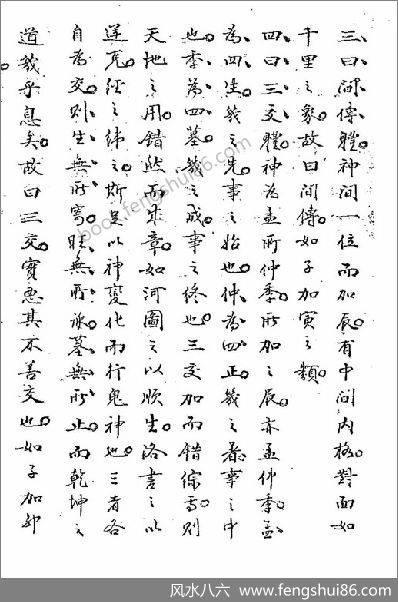 三曰間傳體神間一位而加辰有中間內格對面如
千里之象故曰間傳如子加寅之類
四曰三交體神為孟所仲季所加之辰亦孟仲季孟
為四生幾之先事之始也仲為四正幾之著事之中
也季為四墓幾之成事之終也三交加而錯綜焉則
天地之用錯然而成章如河圖之以順生洛書之以
逆克經之緯之斯足以神變化而行鬼神也三者各
自為交則生無所寄旺無所承墓無所止而乾坤之
道幾乎息矣故曰三交實惡其不善交也如子加卯
book.fengshui86.com
风水八六 - www.fengshui86.com